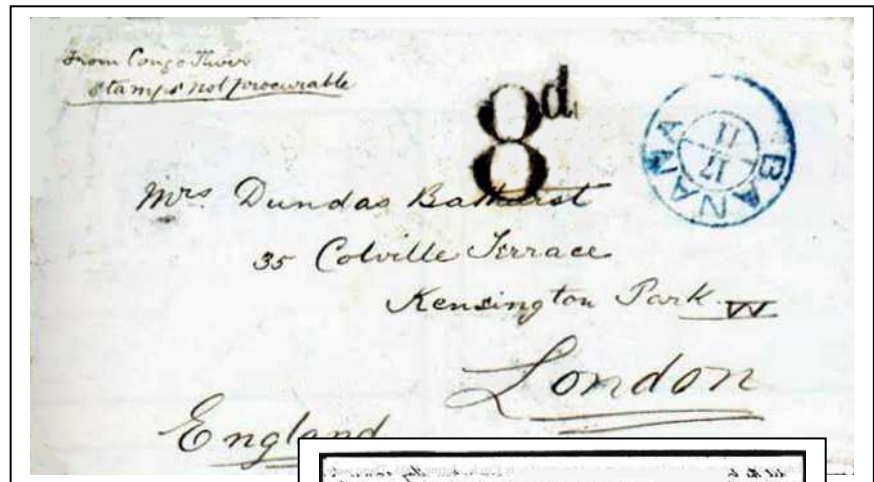 From Congo River
stamps not procurable
8d
BANANA
11
17
Mrs Dundas Bathurst
35 Colville Terrace
Kensington Park W
London
England